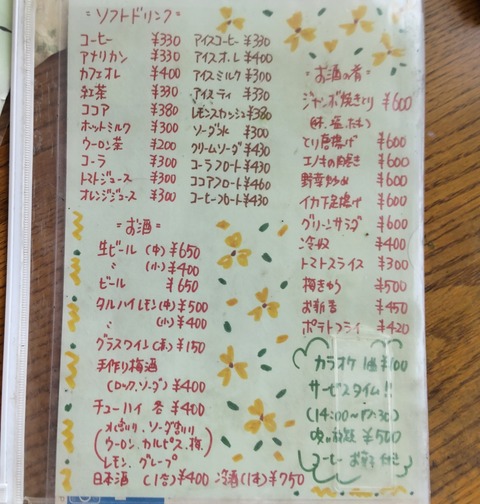 =ソフトドリンク=
コーヒー ¥330
アメリカン ¥330
カフェオレ ¥400
紅茶 ¥330
ココア ¥380
ホットミルク ¥300
ウーロン茶 ¥200
コーラ ¥300
トマトジュース ¥300
オレンジジュース ¥300
アイスコーヒー ¥330
アイスオーレ ¥400
アイスミルク ¥300
アイスティ ¥330
レモンスカッシュ ¥380
ソーダ水 ¥300
クリームソーダ ¥430
コーラフロート ¥430
ココアフロート ¥460
コーヒーフロート ¥430
=お酒=
生ビール (中) ¥650
〃 (小) ¥400
ビール ¥650
タルハイレモン(中) ¥500
〃 (小) ¥400
グラスワイン(赤) ¥150
手作り梅酒
(ロック、ソーダ) ¥400
チューハイ 各 ¥400
水割り、ソーダ割り
ウーロン、カルピス、梅、
レモン、グレープ
日本酒 (1合) ¥400 冷酒(1本) ¥750
=お酒の肴=
ジャンボ焼きとり ¥600
とり唐揚げ ¥600
エノキの肉巻き ¥600
野菜炒め ¥600
イカ下足揚げ ¥600
グリーンサラダ ¥600
冷奴 ¥400
トマトスライス ¥300
梅きゅう ¥500
お新香 ¥450
ポテトフライ ¥420
カラオケ 1曲 ¥100
サービスタイム!!
(14:00~17:30)
¥500
コーヒー お菓子 付き